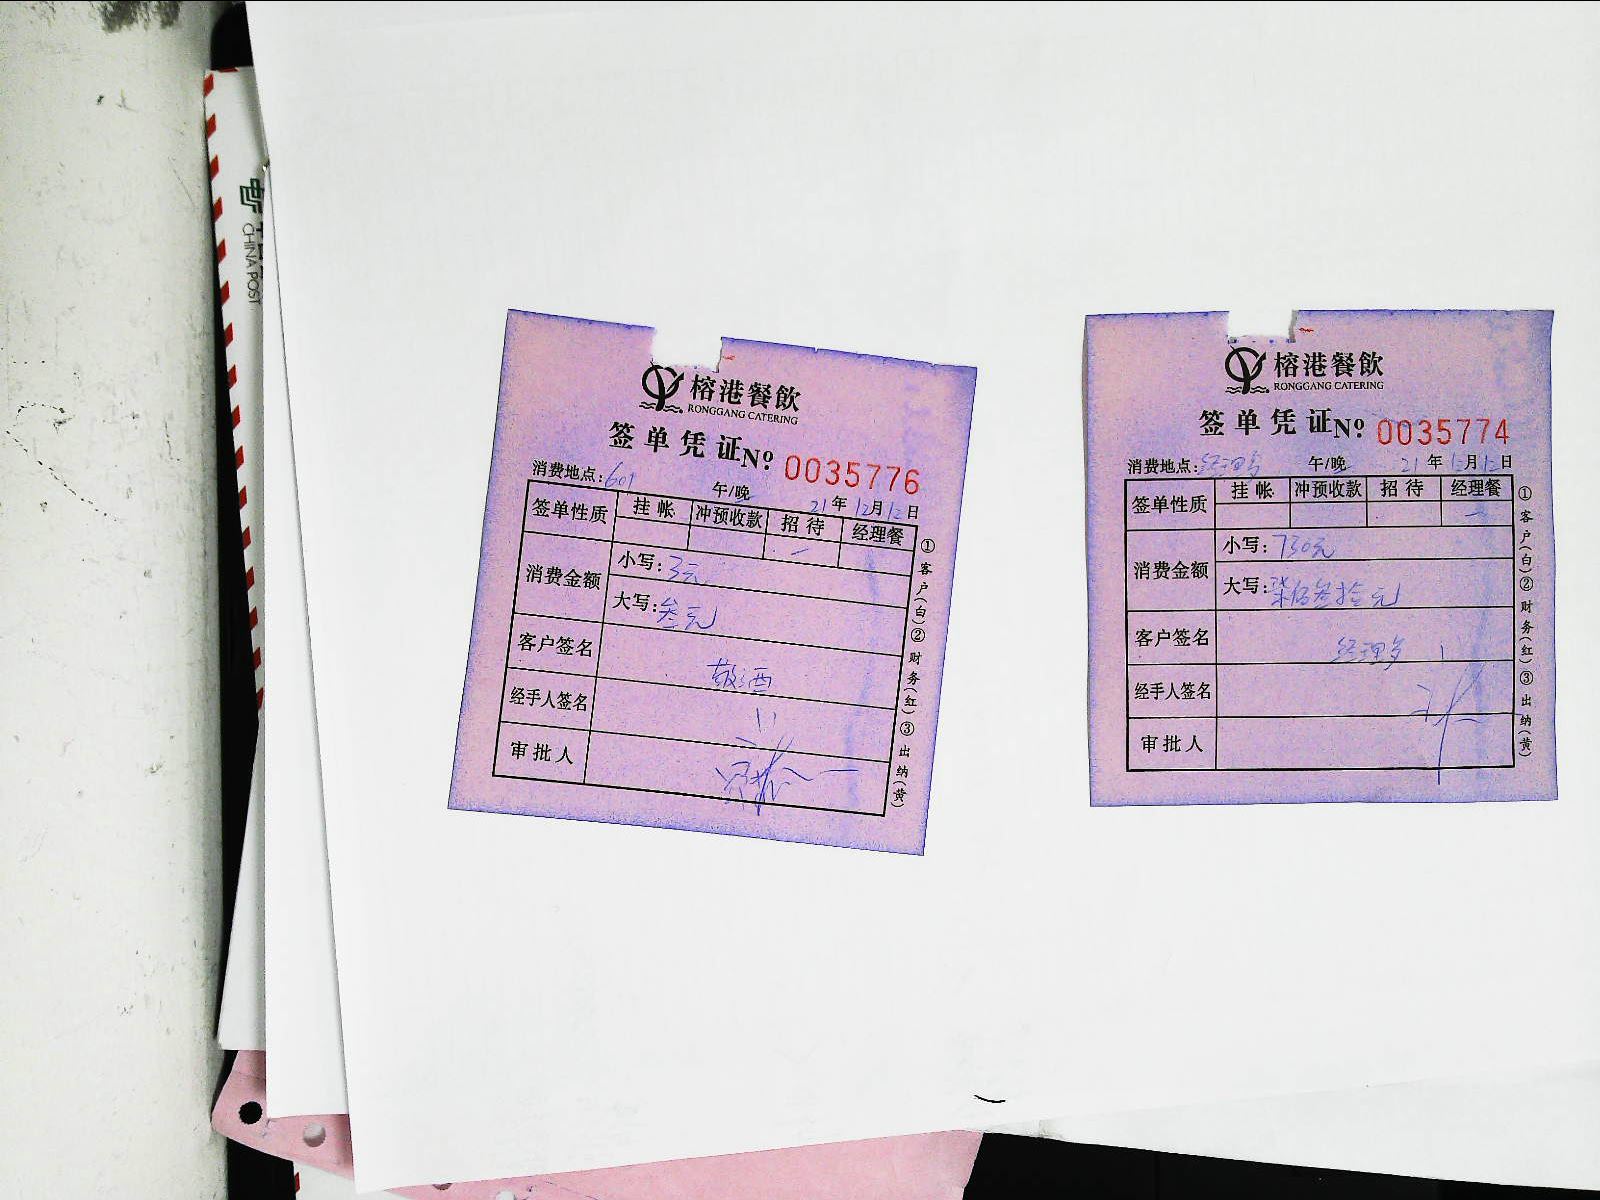 CHINA POST
榕港餐飲
RONGGANG CATERING
签单凭证 Nº 0035776
消费地点：601 午/晚 21年12月12日
签单性质 挂帐 冲预收款 招待 经理餐
消费金额 小写：3元
大写：叁元
客户签名 敬酒
经手人签名
审批人
①客户（白）②财务（红）③出纳（黄）
榕港餐飲
RONGGANG CATERING
签单凭证 Nº 0035774
消费地点：经理 午/晚 21年12月12日
签单性质 挂帐 冲预收款 招待 经理餐
消费金额 小写：730元
大写：柒佰叁拾元
客户签名 经理
经手人签名
审批人
①客户（白）②财务（红）③出纳（黄）